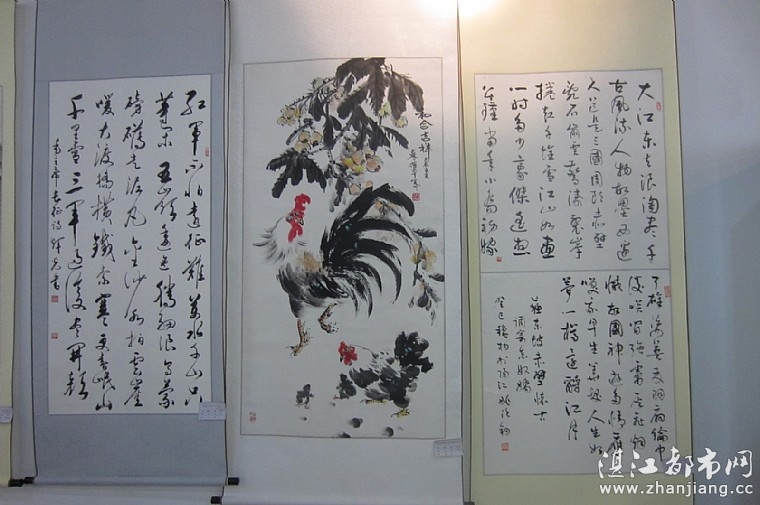 红军不怕远征难万水千山只
等闲五岭逶迤腾细浪乌蒙
磅礴走泥丸金沙水拍云崖
暖大渡桥横铁索寒更喜岷山
千里雪三军过后尽开颜
毛主席长征诗
和合吉祥
大江东去浪淘尽千
古风流人物故垒西边
人道是三國周郎赤壁
乱石穿空惊涛裂岸
捲起千堆雪江山如画
一时多少豪傑遥想
公瑾当年小乔初嫁
了雄姿英发羽扇纶巾
谈笑间强虏灰飞烟
灭故國神遊多情应
笑我早生华发人生如
梦一樽还酹江月
苏东坡赤壁怀古
调寄念奴娇
湛江都市网
www.zhanjiang.cc